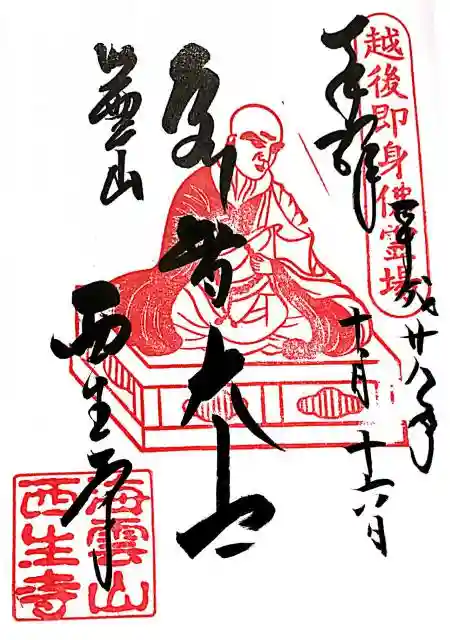 越後即身佛霊場
奉拝
平成廿八年
十六日
海雲山
西生寺
海雲山
西生寺